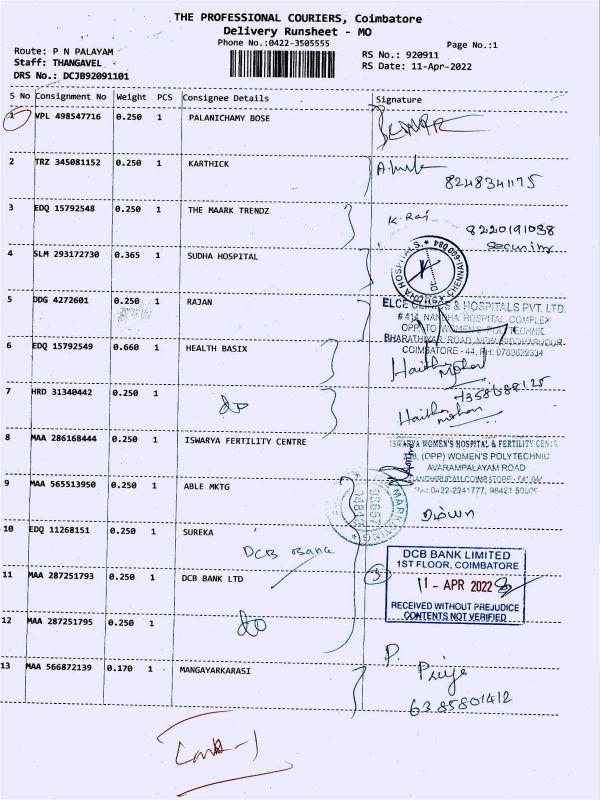 THE PROFESSIONAL COURIERS, Coimbatore
Delivery Runsheet - MO
Phone No.:0422-3505555
Page No.:1
Route: P N PALAYAM
Staff: THANGAVEL
DRS No.: DCJB92091101
RS No.: 920911
RS Date: 11-Apr-2022
S No Consignment No Weight PCS Consignee Details Signature
1 VPL 498547716 0.250 1 PALANICHAMY BOSE
2 TRZ 345081152 0.250 1 KARTHICK
8248341175
3 EDQ 15792548 0.250 1 THE MAARK TRENDZ
K. Raj
8220191038
Security
4 SLM 293172730 0.365 1 SUDHA HOSPITAL
5 DDG 4272601 0.250 1 RAJAN
ELCE CLINICS & HOSPITALS PVT. LTD.
# 414, NANJHA HOSPITAL COMPLEX
OPP TO WOMEN'S POLYTECHNIC
BHARATHIYAR ROAD, NEW SIDDHAPUDUR
COIMBATORE - 44. PH: 9789622334
6 EDQ 15792549 0.660 1 HEALTH BASIX
7 HRD 31340442 0.250 1 do
mohan
8 MAA 286168444 0.250 1 ISWARYA FERTILITY CENTRE
ISWARYA WOMEN'S HOSPITAL & FERTILITY
(OPP) WOMEN'S POLYTECHNIC
AVARAMPALAYAM ROAD
0422-2241777, 98421
9 MAA 565513950 0.250 1 ABLE MKTG
MARKETING
10 EDQ 11268151 0.250 1 SUREKA
DCB Bank
11 MAA 287251793 0.250 1 DCB BANK LTD
3
DCB BANK LIMITED
1ST FLOOR, COIMBATORE
11 - APR 2022
RECEIVED WITHOUT PREJUDICE
CONTENTS NOT VERIFIED
12 MAA 287251795 0.250 1 do
13 MAA 566872139 0.170 1 MANGAYARKARASI
P.
Priya
6385801412